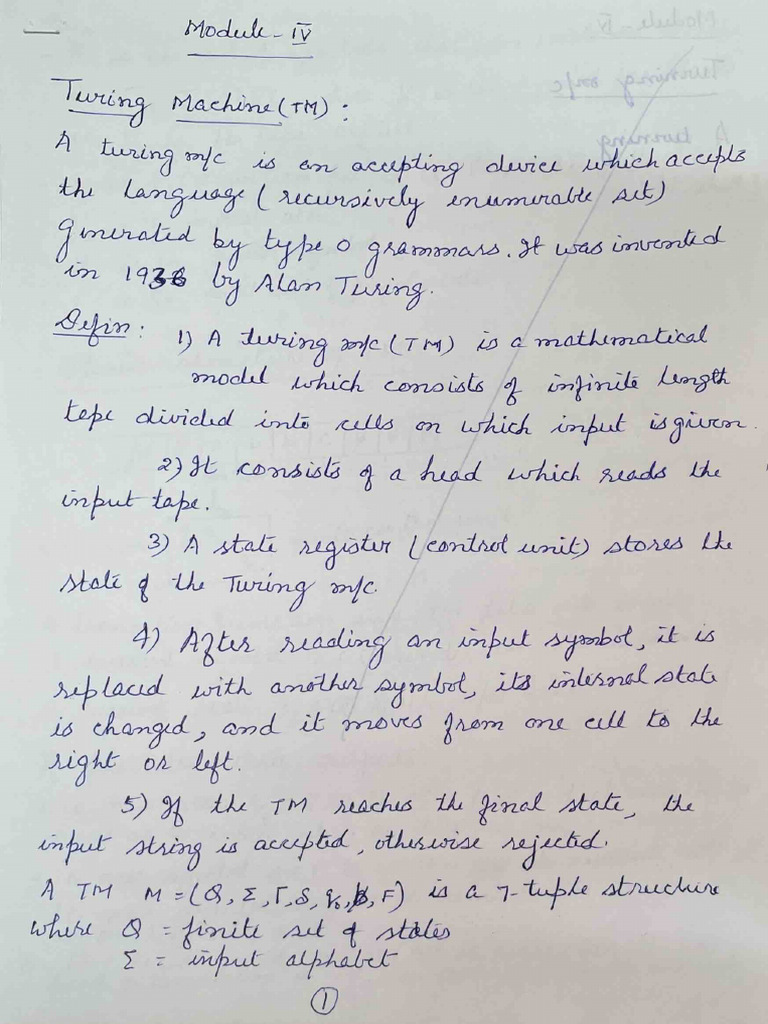 Module - IV
Turing Machine (TM) :
A turing m/c is an accepting device which accepts
the language (recursively enumerable set)
generated by type 0 grammars. It was invented
in 1936 by Alan Turing.
Defin : 1) A turing m/c (TM) is a mathematical
model which consists of infinite length
tape divided into cells on which input is given.
2) It consists of a head which reads the
input tape.
3) A state register (control unit) stores the
state of the Turing m/c.
4) After reading an input symbol, it is
replaced with another symbol, its internal state
is changed, and it moves from one cell to the
right or left.
5) If the TM reaches the final state, the
input string is accepted, otherwise rejected.
A TM M = (Q, Σ, Γ, δ, q₀, b, F) is a 7-tuple structure
where Q = finite set of states
Σ = input alphabet
1